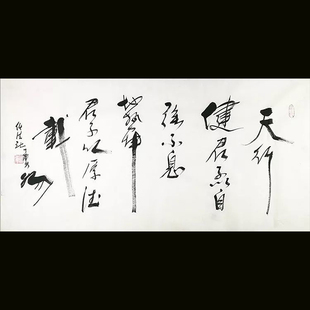 天行
健君子以自
强不息
地势坤
君子以厚德
载物